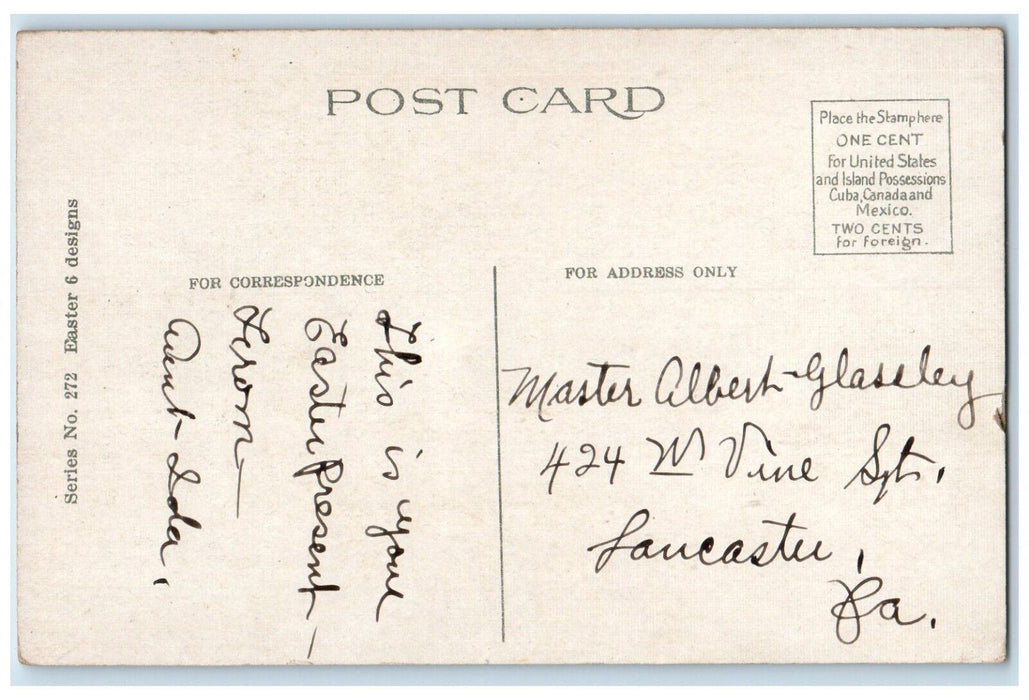 POST CARD
Place the Stamp here
ONE CENT
for United States
and Island Possessions
Cuba, Canada and
Mexico.
TWO CENTS
for foreign.
Series No. 272 Easter 6 designs
FOR CORRESPONDENCE
This is your
Easter present —
From —
Aunt Ida,
FOR ADDRESS ONLY
Master Albert Glassley
424 W Vine St.,
Lancaster,
Pa.